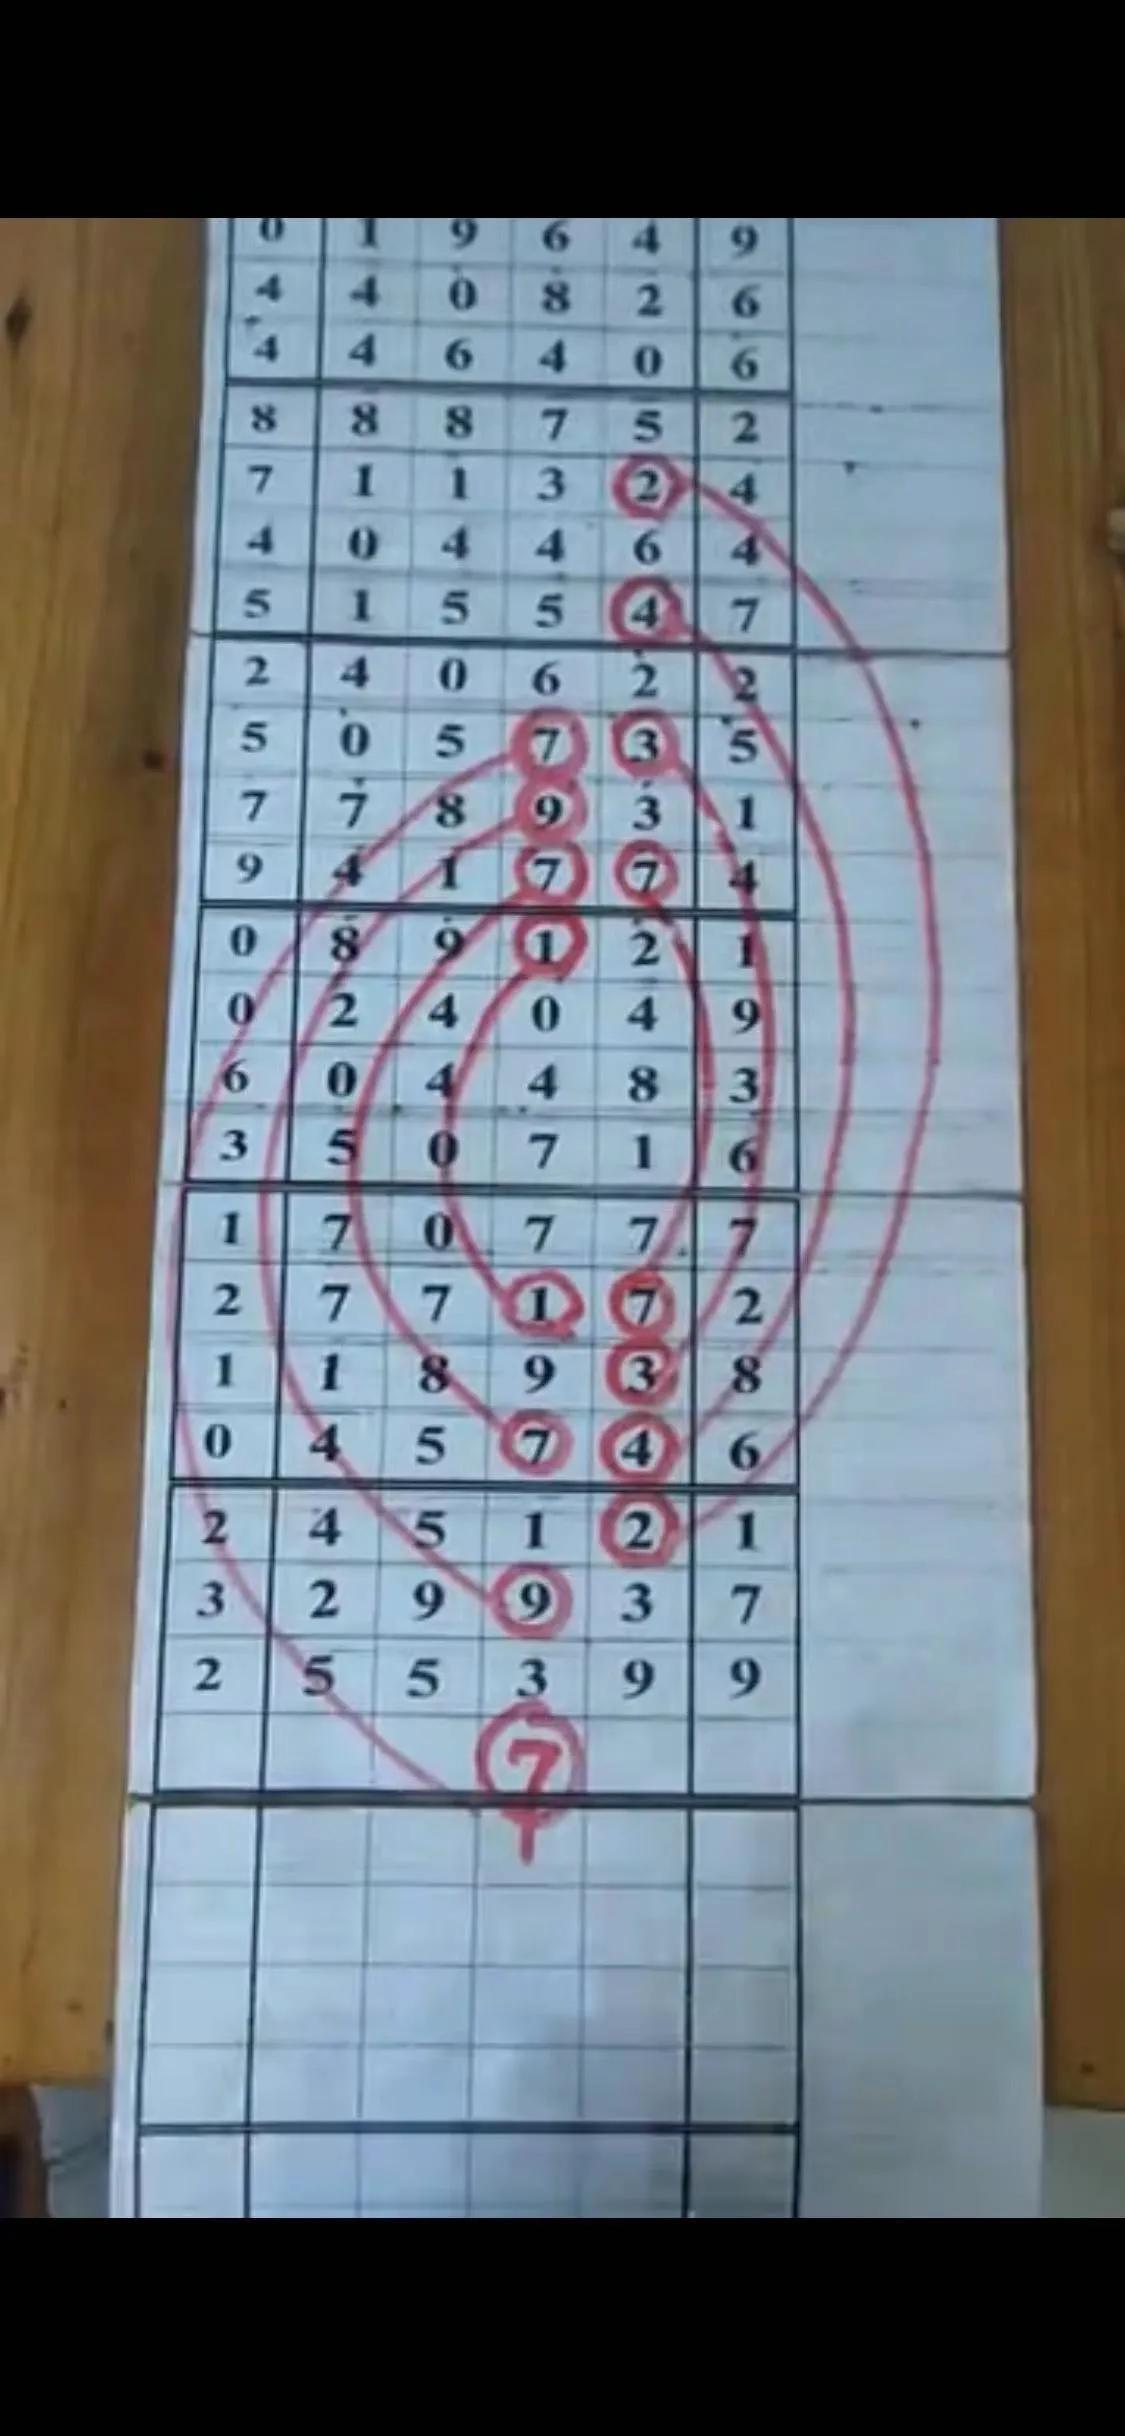 0 1 9 6 4 9
4 4 0 8 2 6
4 4 6 4 0 6
8 8 8 7 5 2
7 1 1 3 2 4
4 0 4 4 6 4
5 1 5 5 4 7
2 4 0 6 2 2
5 0 5 7 3 5
7 7 8 9 3 1
9 4 1 7 7 4
0 8 9 1 2 1
0 2 4 0 4 9
6 0 4 4 8 3
3 5 0 7 1 6
1 7 0 7 7 7
2 7 7 1 7 2
1 1 8 9 3 8
0 4 5 7 4 6
2 4 5 1 2 1
3 2 9 9 3 7
2 5 5 3 9 9
7